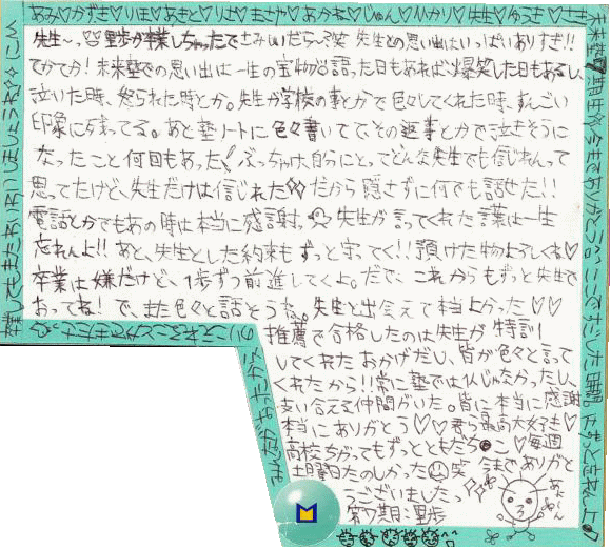 あみ♡かずき♡りほ♡あきと♡りさ♡まさや♡あかね♡じゅん♡ひかり♡先生♡ゆうき♡
先生〜っ 里歩が卒業しちゃったでさみしいだら〜?笑 先生との思い出はいっぱいありすぎ!!
てかてか!未来塾での思い出は一生の宝物 語った日もあれば、爆笑した日もあるし、
泣いた時、怒られた時とか。先生が学校の事とかで色々してくれた時、すんごい
印象に残ってる。あと塾ノートに色々書いてて、その返事とかで泣きそうに
なったこと何回もあった!ぶっちゃけ、自分にとってどんな先生でも信じれんって
思ってたけど、先生だけは信じれた だから隠さずに何でも話せた!!
電話とかでもあの時は本当に感謝。先生が言ってくれた言葉は一生
忘れんよ!!あと、先生とした約束もずっと守ってく!!預けた物よろしくね♡
卒業は嫌だけど、1歩ずつ前進してくよ。だで、これからもずっと先生で
おってね!で、また色々と話そうね。先生と出会えて本当よかった♡♡
推薦で合格したのは先生が特訓
してくれたおかげだし、皆が色々と言って
くれたから!!常に塾では1人じゃなかったし、
支い合える仲間がいた。皆に本当に感謝
本当にありがとう♡♡君ら最高大好き♡
高校ちがってもずっとともだち 毎週
土曜日たのしかった 笑 今までありがと
うございましたっ
第7期:里歩